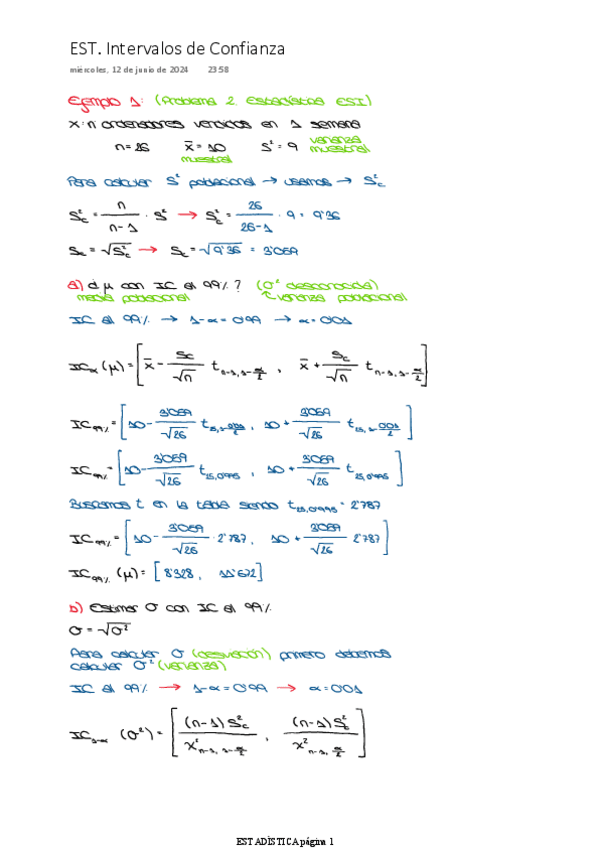 EST. Intervalos de Confianza
miércoles, 12 de junio de 2024 23:58
Ejemplo 1: (Problema 2 Estadísticas ESI)
X: n ordenadores vendidos en 1 semana
n=26 x̄=10 S²=9 varianza muestral
muestral
Para calcular S² poblacional → usamos → Sc²
Sc² = n/(n-1) · S² → Sc² = 26/(26-1) · 9 = 9'36
Sc = √Sc² → Sc = √9'36 = 3'059
a) ¿ μ con IC al 99% ? (σ² desconocida)
media poblacional ↑ varianza poblacional
IC al 99% → 1-α=0'99 → α=0'01
ICα (μ) = [ x̄ - Sc/√n t n-1, 1-α/2 , x̄ + Sc/√n t n-1, 1-α/2 ]
IC99% = [ 10 - 3'059/√26 t 25, 1-0'01/2 , 10 + 3'059/√26 t 25, 1-0'01/2 ]
IC99% = [ 10 - 3'059/√26 t 25, 0'995 , 10 + 3'059/√26 t 25, 0'995 ]
Buscamos t en la tabla siendo t 25, 0'995 = 2'787
IC99% = [ 10 - 3'059/√26 · 2'787 , 10 + 3'059/√26 2'787 ]
IC99% (μ) = [ 8'328 , 11'672 ]
b) Estimar σ con IC al 99%
σ = √σ²
Para calcular σ (desviación) primero debemos
calcular σ² (varianza)
IC al 99% → 1-α=0'99 → α=0'01
IC1-α (σ²) = [ (n-1) Sc² / X² n-1, 1-α/2 , (n-1) Sc² / X² n-1, α/2 ]
ESTADÍSTICA página 1